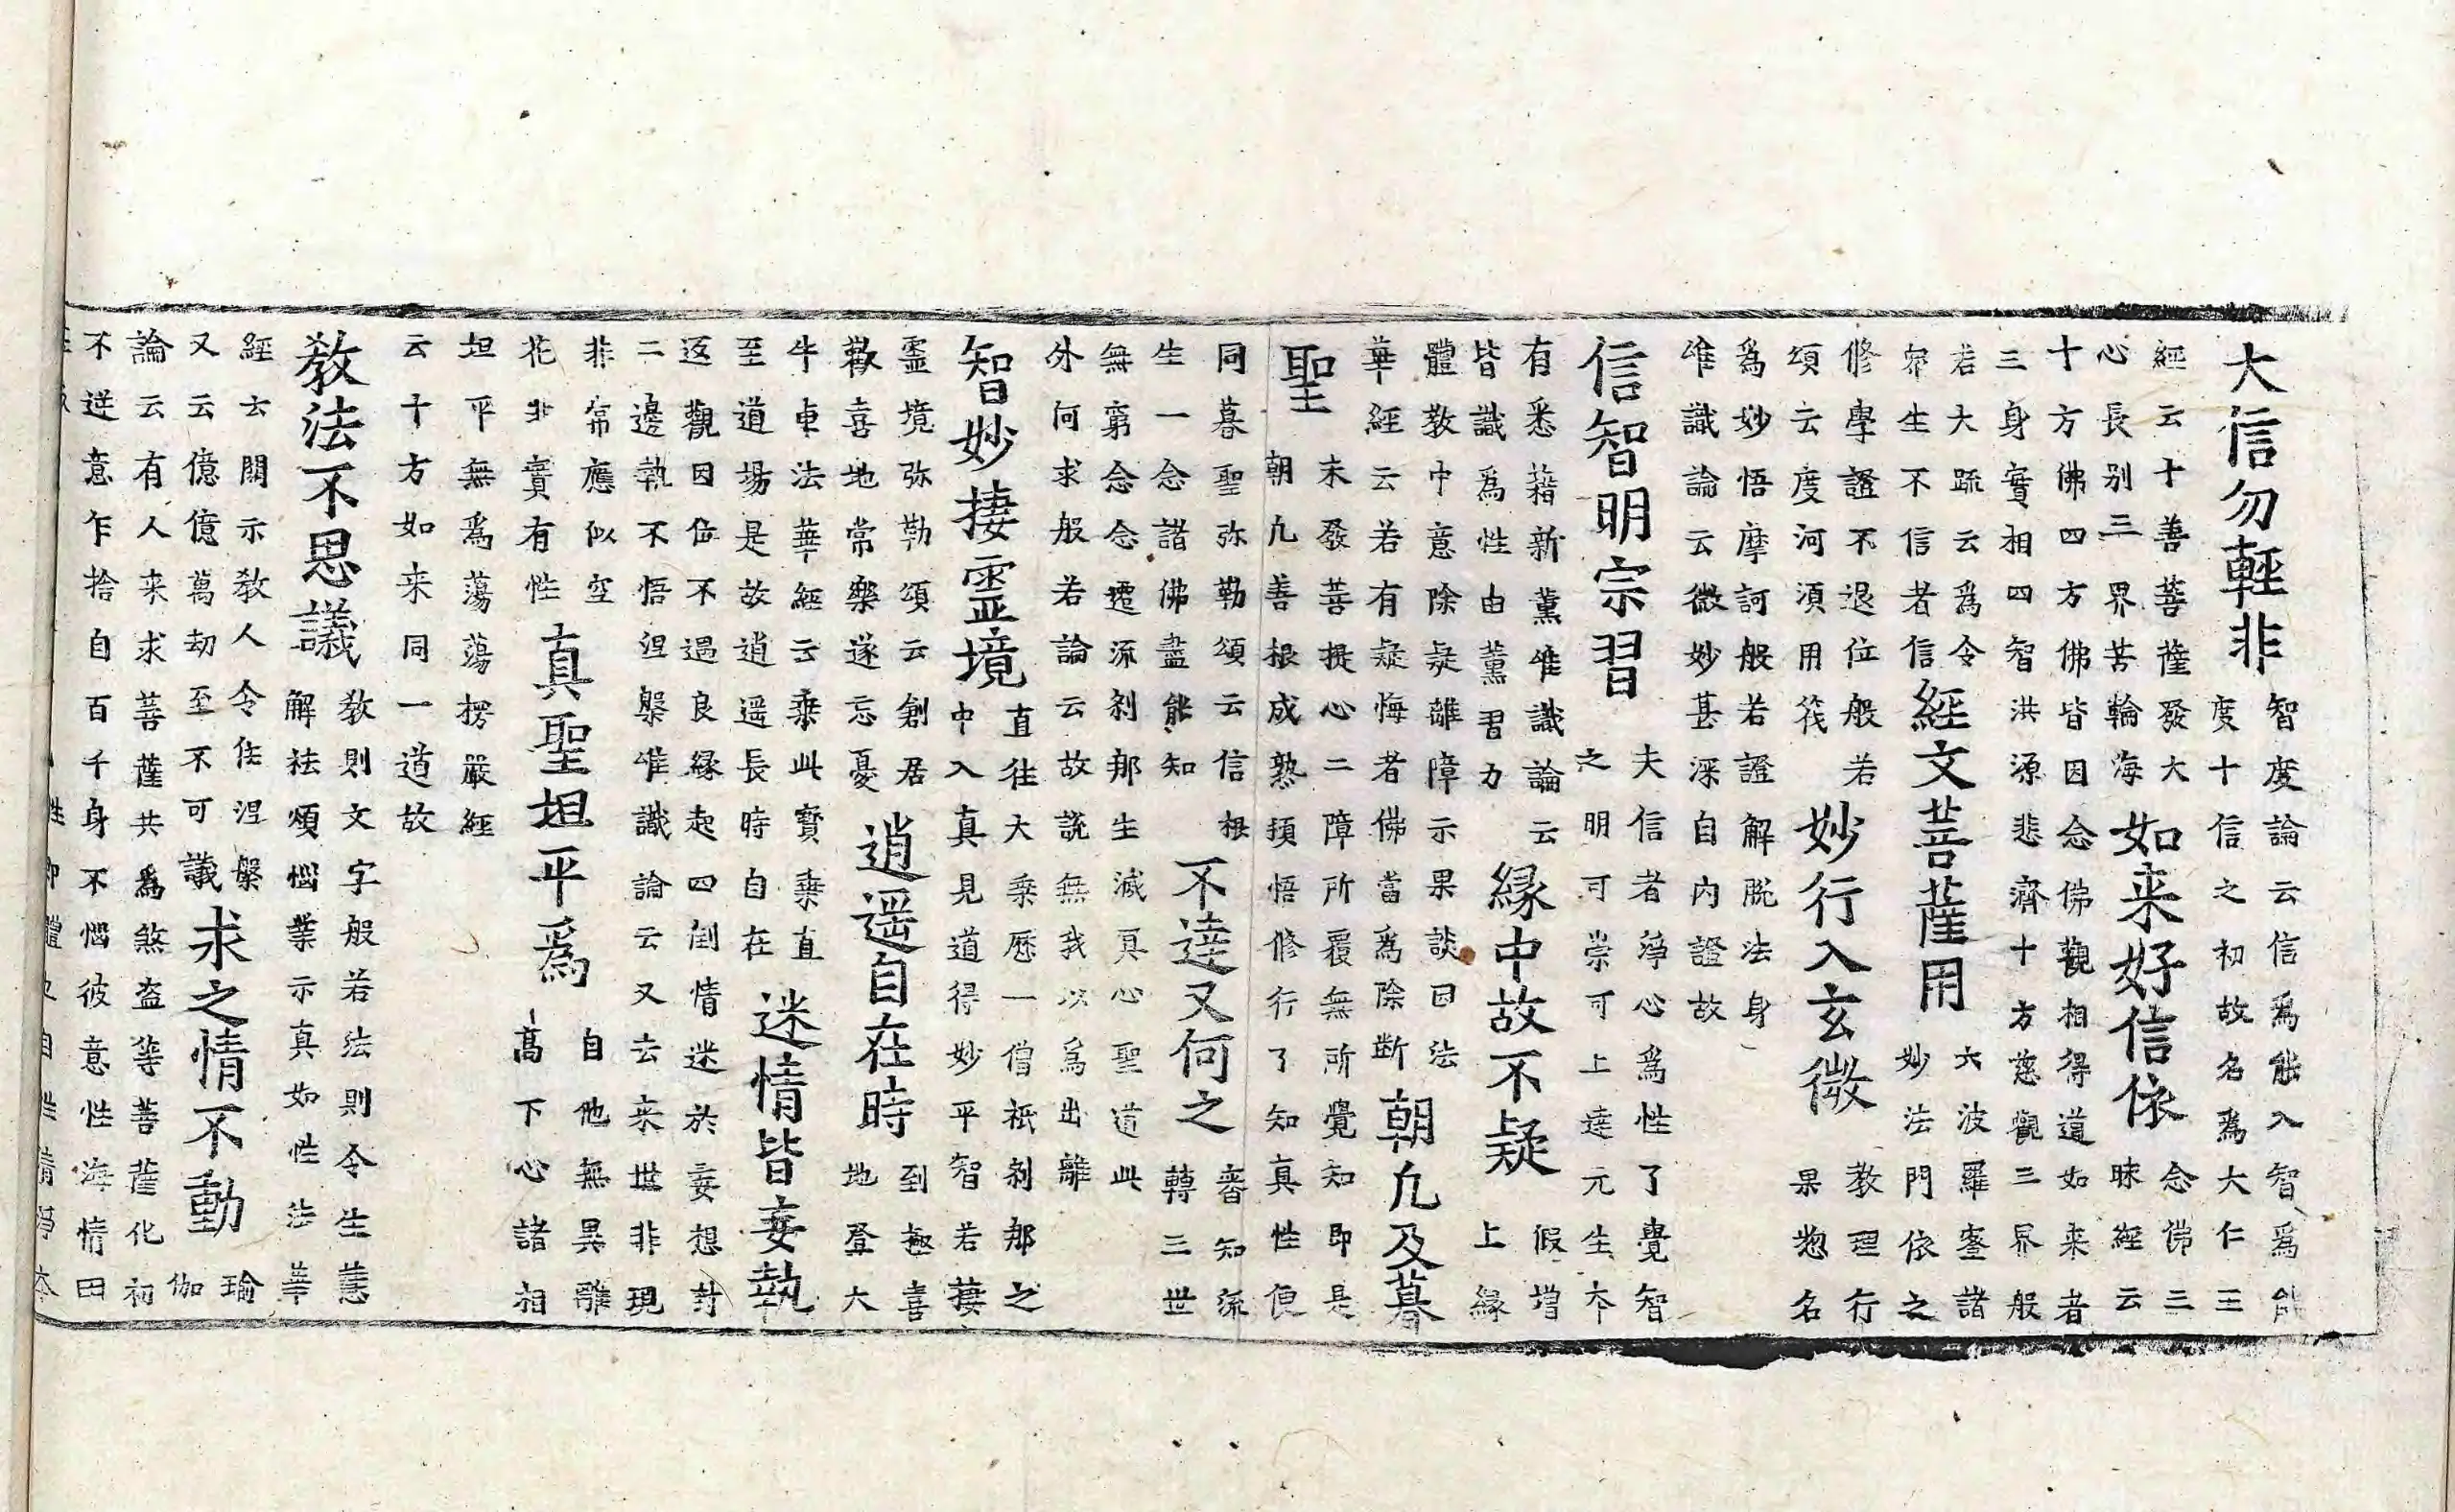 大信勿輕非
智度論云信為能入智為能
度十信之初故名為大仁王
經云十善菩薩發大
心長别三界苦輪海
如来好信依
念佛三
昧經云
十方佛四方佛皆因念佛觀相得道如来者
三身實相四智洪源悲濟十方慈觀三界般
若大䟽云為令
衆生不信者信
經文菩薩用
六波羅蜜諸
妙法門依之
修學證不退位般若
頌云度河須用筏
妙行入玄微
教理行
果惣名
為妙悟摩訶般若證解脱法身
唯識論云微妙甚深自内證故
信智明宗習
夫信者淨心為性了覺智
之明可崇可上達元生夲
有悉藉新薰唯識論云
皆識為性由薰習力
緣中故不疑
假增
上緣
體教中意除疑離障示果談因法
華經云若有疑悔者佛當為除断
朝凡及暮
聖
末發菩提心二障所覆無所覺知即是
朝凡善根成熟頓悟修行了知真性便
同暮聖弥勒頌云信根
生一念諸佛盡能知
不達又何之
審知流
轉三世
無窮念念遷流剎那生滅真心聖道此
外何求般若論云故説無我以為出離
智妙捿靈境
直往大乘歷一僧祇剎那之
中入真見道得妙平智若捿
靈境弥勒頌云創居
歡喜地常樂遂忘憂
逍遥自在時
到極喜
地登大
牛車法華經云乘此寶乘直
至道場是故逍遥長時自在
迷情皆妄執
返觀因位不過良緣起四倒情迷於妄想討
二邊執不悟涅槃唯識論云又去来世非現
非常應似空
花非實有性
真聖坦平為
自他無異離
高下心諸相
坦平無為蕩蕩楞嚴經
云十方如来同一道故
教法不思議
教則文字般若法則令生慧
解祛煩惱業示真如性法華
經云開示教人令住涅槃
又云億億萬劫至不可議
求之情不動
瑜
伽
論云有人来求菩薩共為煞盗等菩薩化初
不逆意乍捨自百千身不惱彼意性海情田